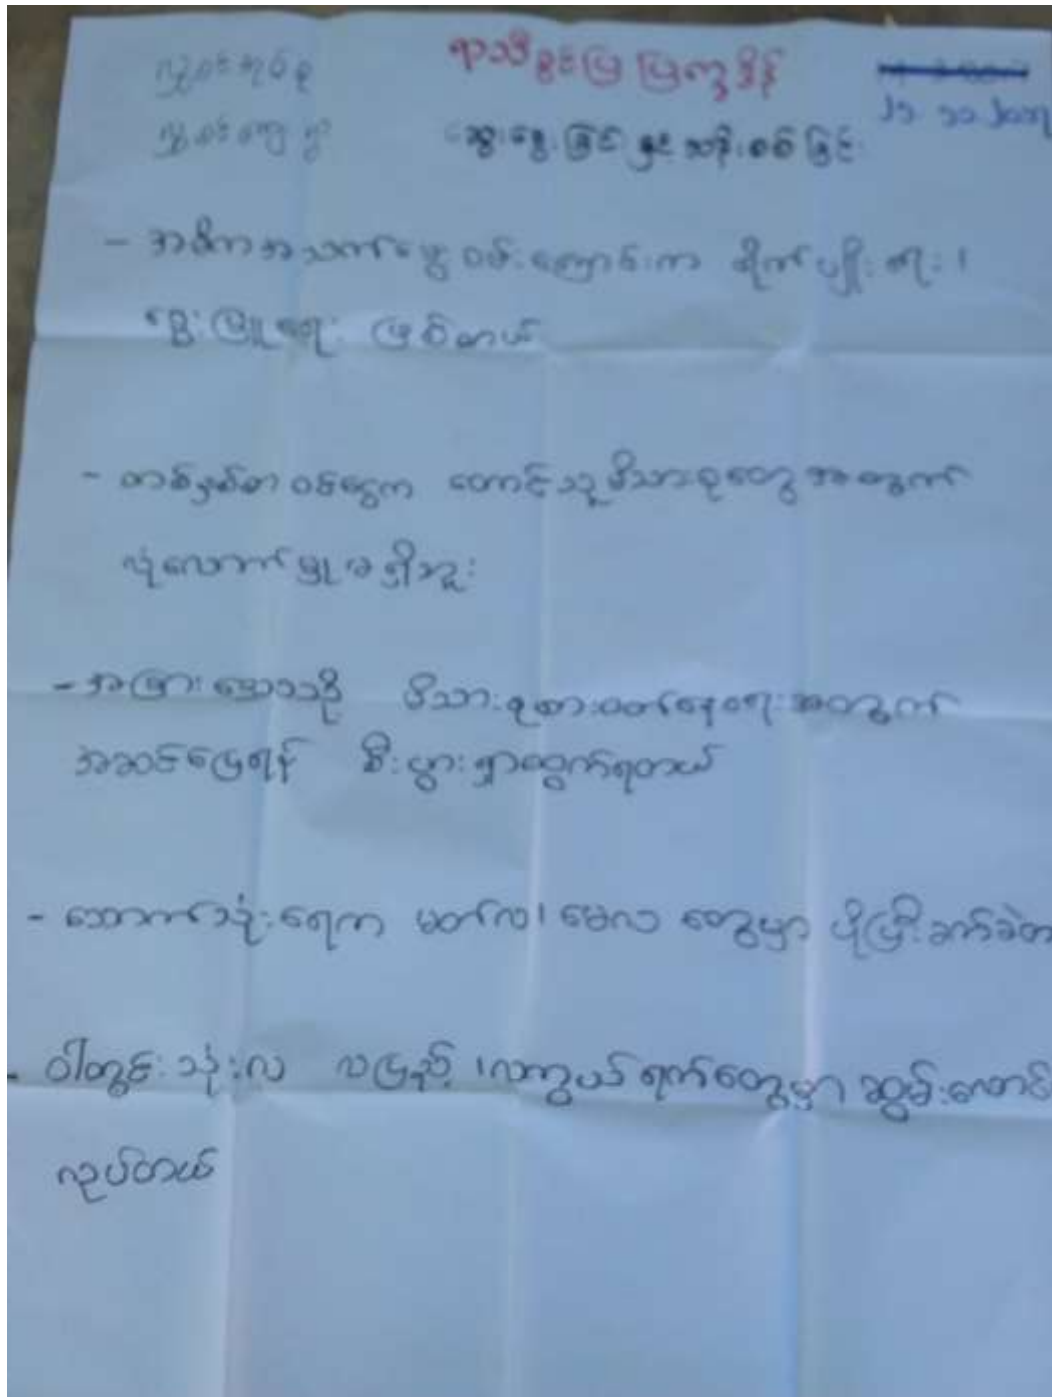 ရာသီခွင်ပြ ပြက္ခဒိန်
၂၁.၁၁.၂၀၁၇
ဆွေးနွေးခြင်း နှင့် သုံးသပ်ခြင်း
- အဓိကအသက်မွေးဝမ်းကျောင်းက စိုက်ပျိုးရေး၊
မွေးမြူရေး ဖြစ်တယ်
- တစ်နှစ်တာ ဝင်ငွေက တောင်သူမိသားစုတွေအတွက်
လုံလောက်မှုမရှိဘူး
- အခြားဒေသသို့ မိသားစုစားဝတ်နေရေးအတွက်
အဆင်ပြေရန် စီးပွားရှာထွက်ရတယ်
- သောက်သုံးရေက မတ်လ၊ မေလ တွေမှာ ပိုပြီးခက်ခဲတ
- ဝါတွင်းသုံးလ လပြည့်၊လကွယ်ရက်တွေမှာ ဆွမ်းလောင်
လုပ်တယ်